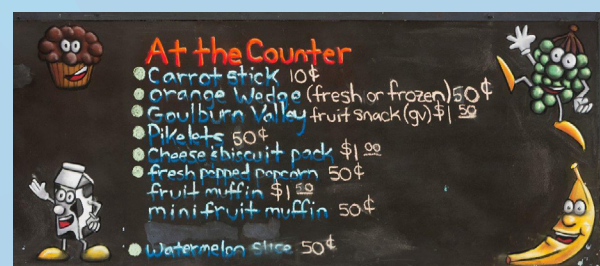 At the Counter
Carrot stick 10¢
Orange Wedge (fresh or frozen) 50¢
Goulburn Valley fruit snack (gv) $1 50
Pikelets 50¢
Cheese & biscuit pack $1 00
fresh popped popcorn 50¢
fruit muffin $1 50
mini fruit muffin 50¢
Watermelon Slice 50¢